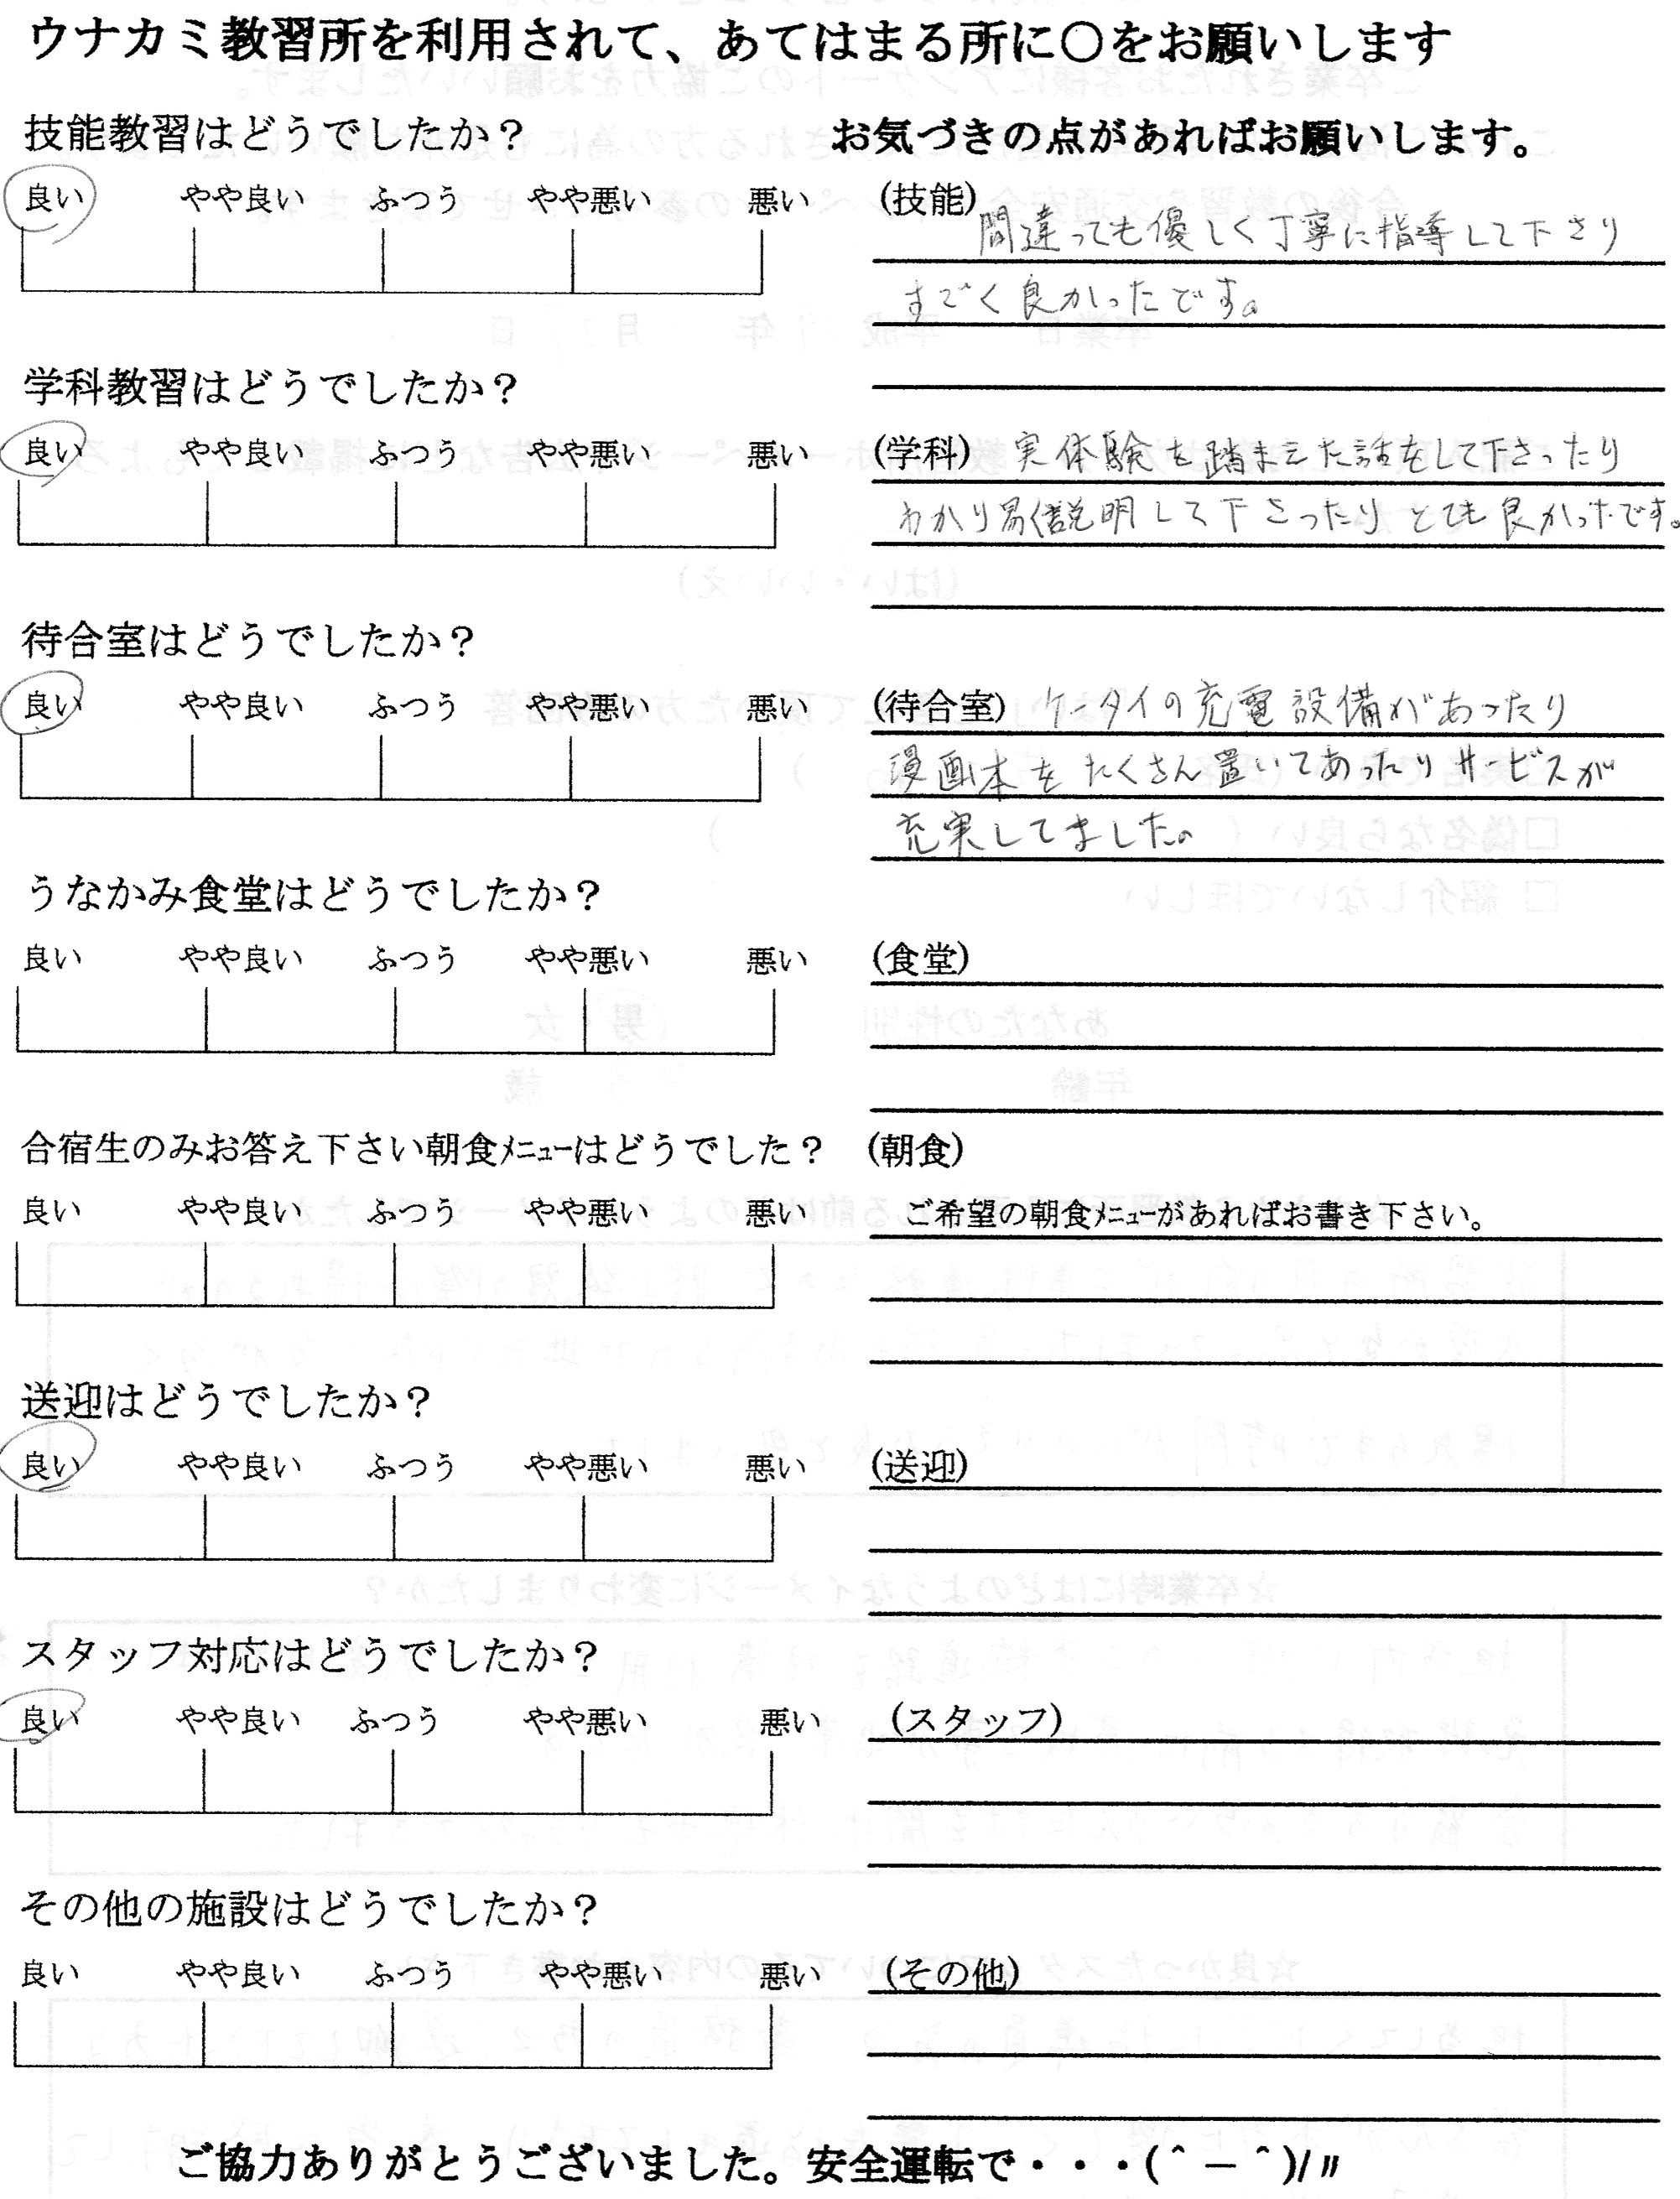 ウナカミ教習所を利用されて、あてはまる所に○をお願いします
技能教習はどうでしたか？
お気づきの点があればお願いします。
良い やや良い ふつう やや悪い 悪い
(技能)
間違っても優しく丁寧に指導して下さり
すごく良かったです。
学科教習はどうでしたか？
良い やや良い ふつう やや悪い 悪い
(学科) 実体験を踏まえた話をして下さったり
わかり易く説明して下さったりとても良かったです。
待合室はどうでしたか？
良い やや良い ふつう やや悪い 悪い
(待合室) ケータイの充電設備があったり
漫画本をたくさん置いてあったりサービスが
充実してました。
うなかみ食堂はどうでしたか？
良い やや良い ふつう やや悪い 悪い
(食堂)
合宿生のみお答え下さい朝食ﾒﾆｭｰはどうでした？
(朝食)
良い やや良い ふつう やや悪い 悪い
ご希望の朝食ﾒﾆｭｰがあればお書き下さい。
送迎はどうでしたか？
良い やや良い ふつう やや悪い 悪い
(送迎)
スタッフ対応はどうでしたか？
良い やや良い ふつう やや悪い 悪い
(スタッフ)
その他の施設はどうでしたか？
良い やや良い ふつう やや悪い 悪い
(その他)
ご協力ありがとうございました。安全運転で・・・(＾－＾)/〃